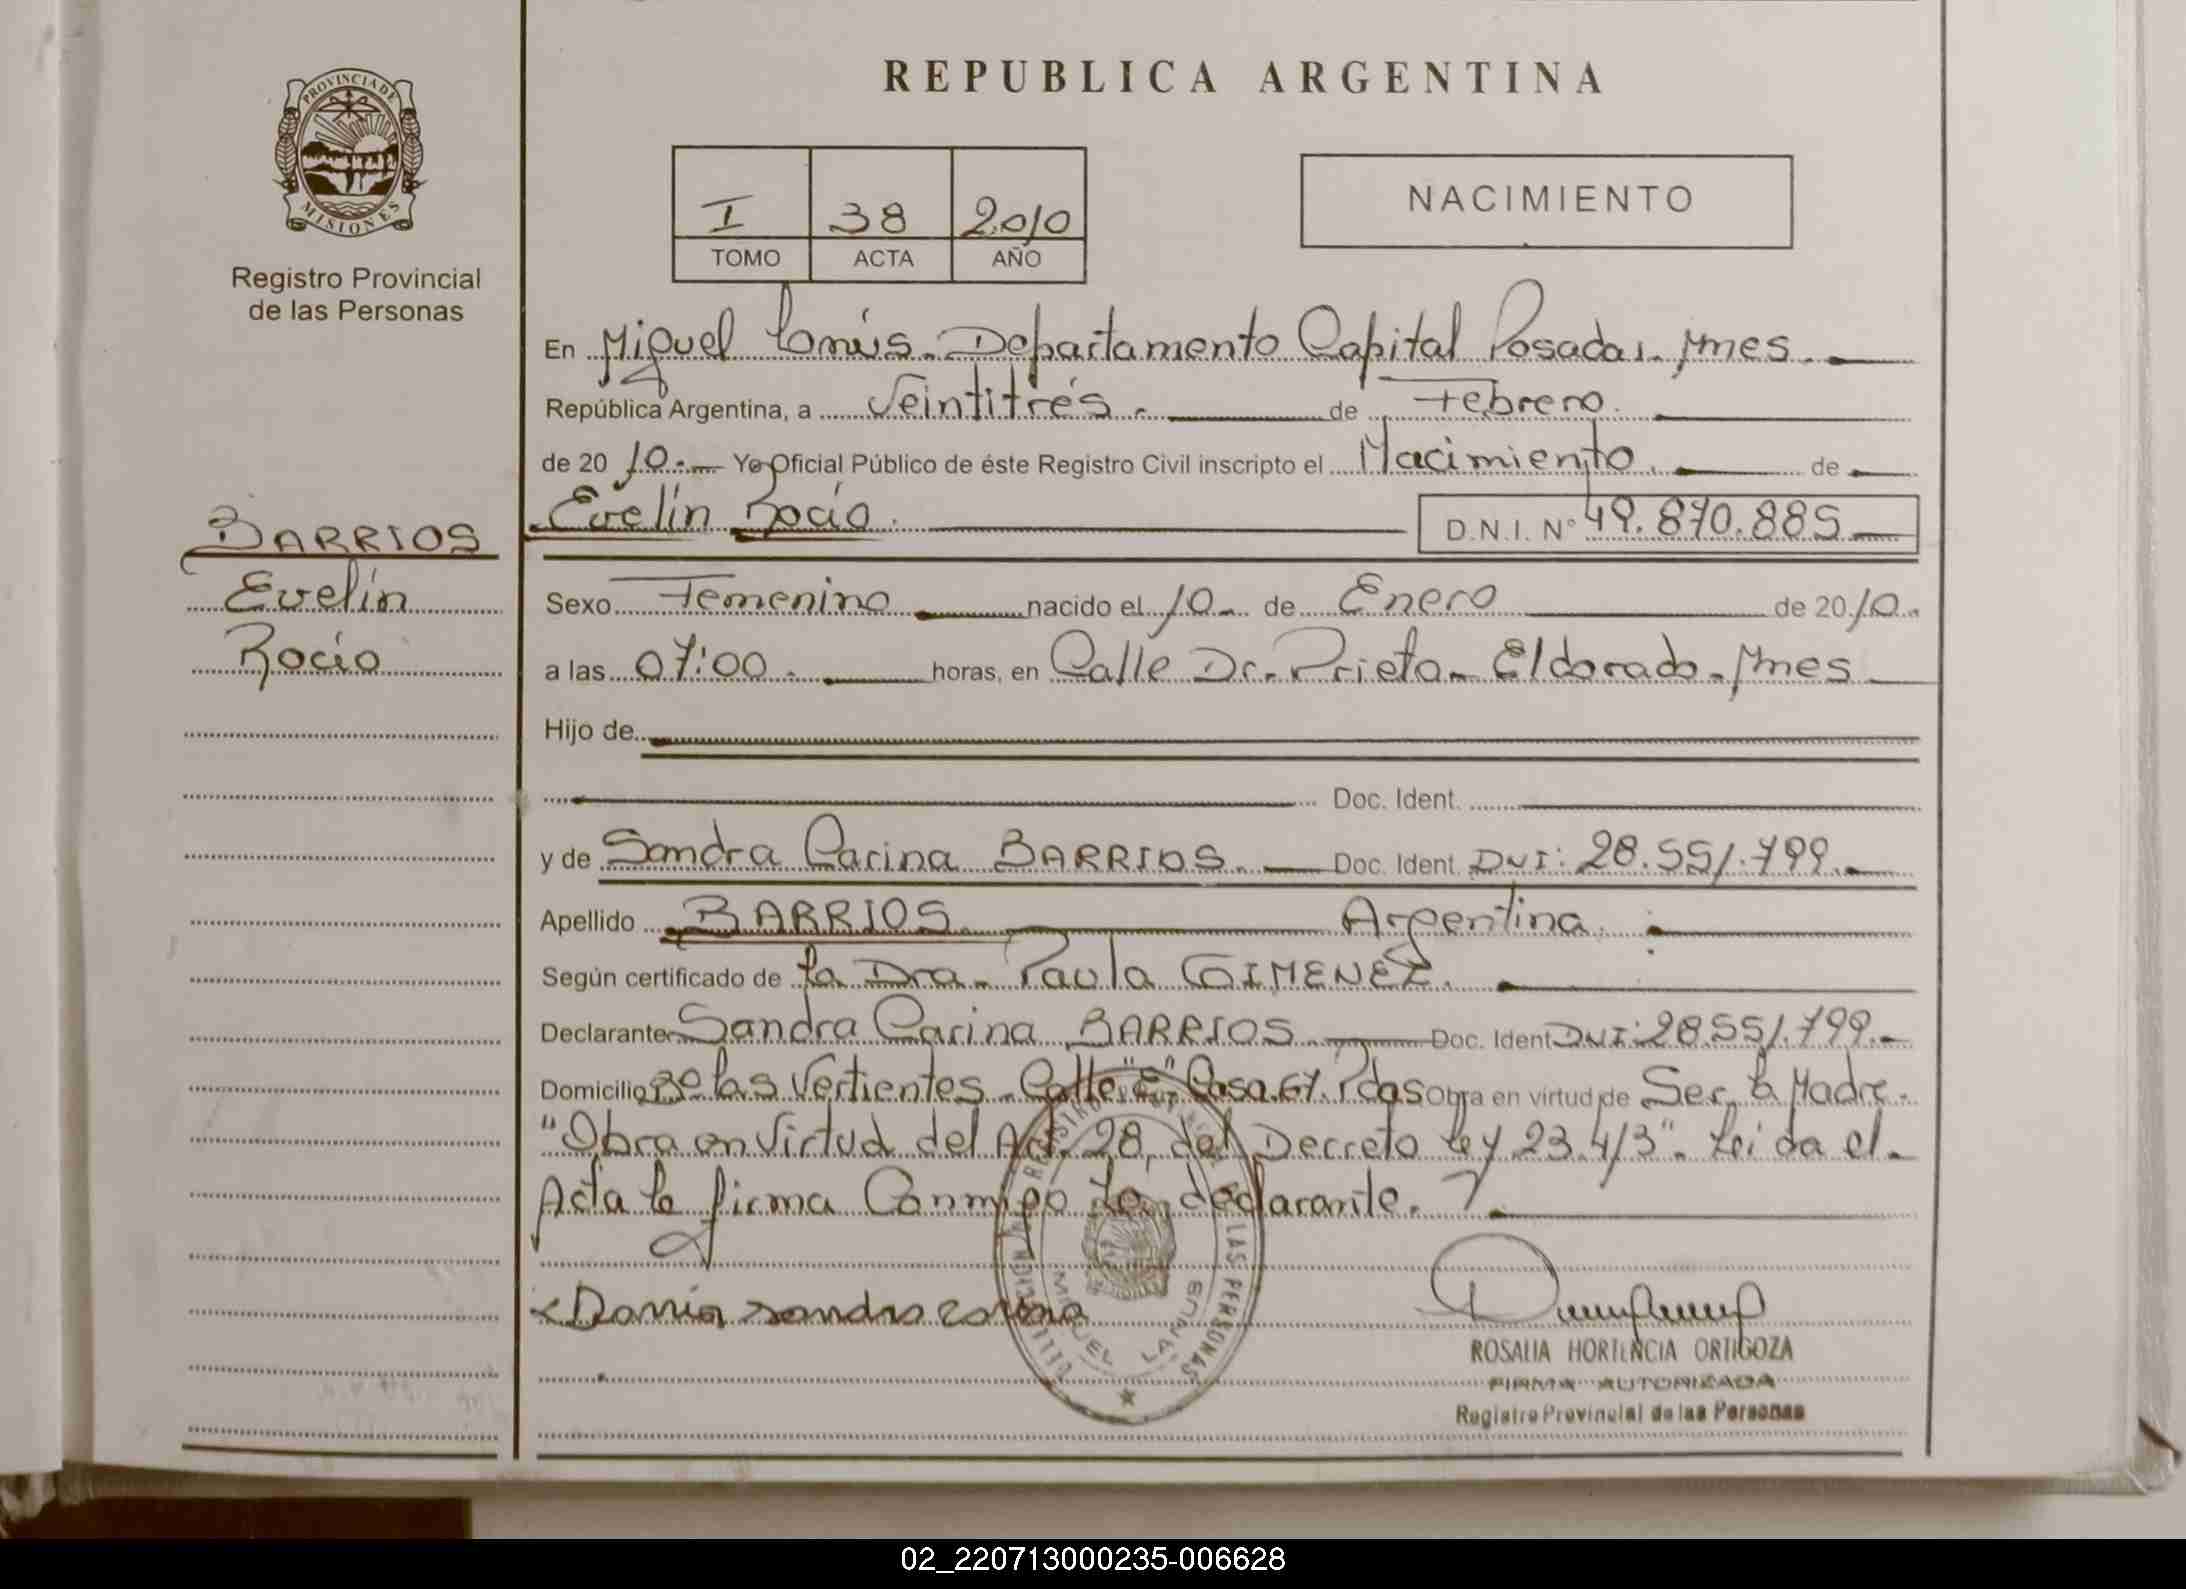 PROVINCIA DE
MISIONES
Registro Provincial
de las Personas
BARRIOS
Evelín
Rocío
REPUBLICA ARGENTINA
I 38 2010
TOMO ACTA AÑO
NACIMIENTO
En Miguel Lanús. Departamento Capital Posadas. Mnes.
República Argentina, a Veintitrés. de Febrero.
de 2010.- Yo Oficial Público de éste Registro Civil inscripto el Nacimiento. de
Evelín Rocío. D.N.I. N° 49.870.885
Sexo Femenino nacido el 10 de Enero de 2010.
a las 07:00. horas, en Calle Dr. Prieto - Eldorado - Mnes
Hijo de
Doc. Ident.
y de Sandra Carina BARRIOS. Doc. Ident. DNI: 28.551.799.
Apellido BARRIOS Argentina.
Según certificado de La Dra. Paula GIMENEZ.
Declarante Sandra Carina BARRIOS. Doc. Ident DNI: 28551.799.-
Domicilio B° las Vertientes - Calle "E" Casa.67. Pdas Obra en virtud de Ser la Madre.
"Obra en Virtud del Art. 28 del Decreto ley 23.413". Leida el.
Acta la firma Conmigo La declarante.
sandra carina
MIGUEL LANUS
ROSALIA HORTENCIA ORTIGOZA
FIRMA AUTORIZADA
Registro Provincial de las Personas
02_220713000235-006628